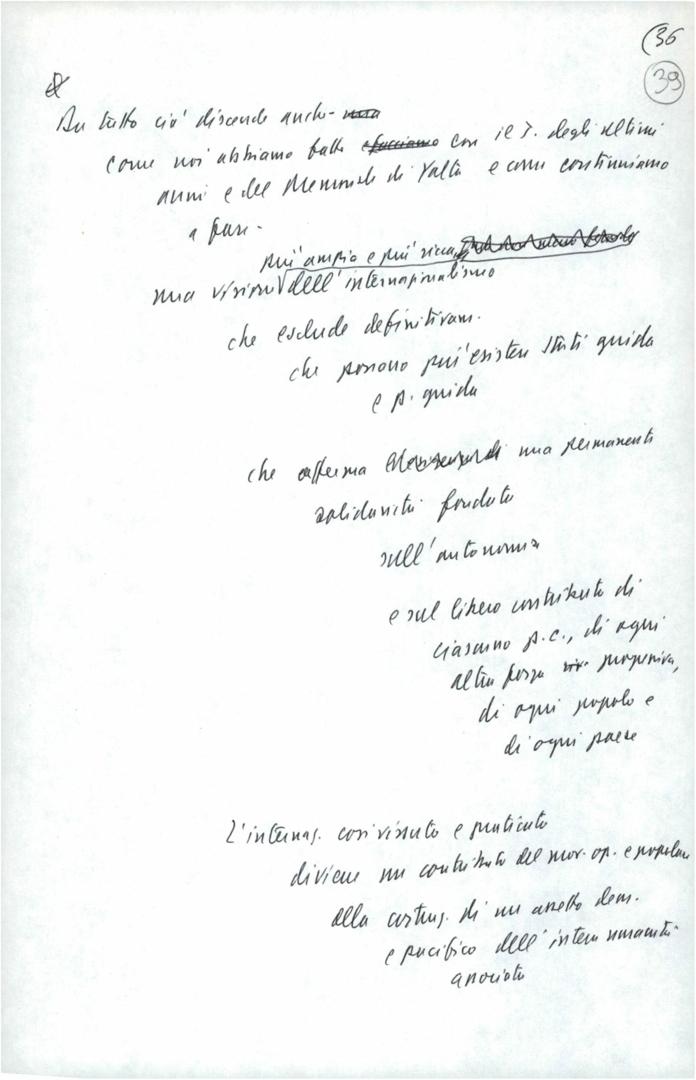 (36
39
Da tutto ciò discende anche
come noi abbiamo fatto facciamo con il T. degli ultimi
anni e del Memoriale di Yalta e come continuiamo
a fare -
più ampia e più ricca
una visione dell'internazionalismo
che esclude definitivam.
che possano più esistere Stati guida
e p. guida
che afferma una permanente
solidarietà fondata
sull'autonomia
e sul libero contributo di
ciascuno p.c., di ogni
altra forza progressiva,
di ogni popolo e
di ogni paese
L'internaz. così vissuto e praticato
diviene un contributo del mov. op. e popolare
alla costruz. di un assetto dem.
e pacifico dell'intera umanità
associata